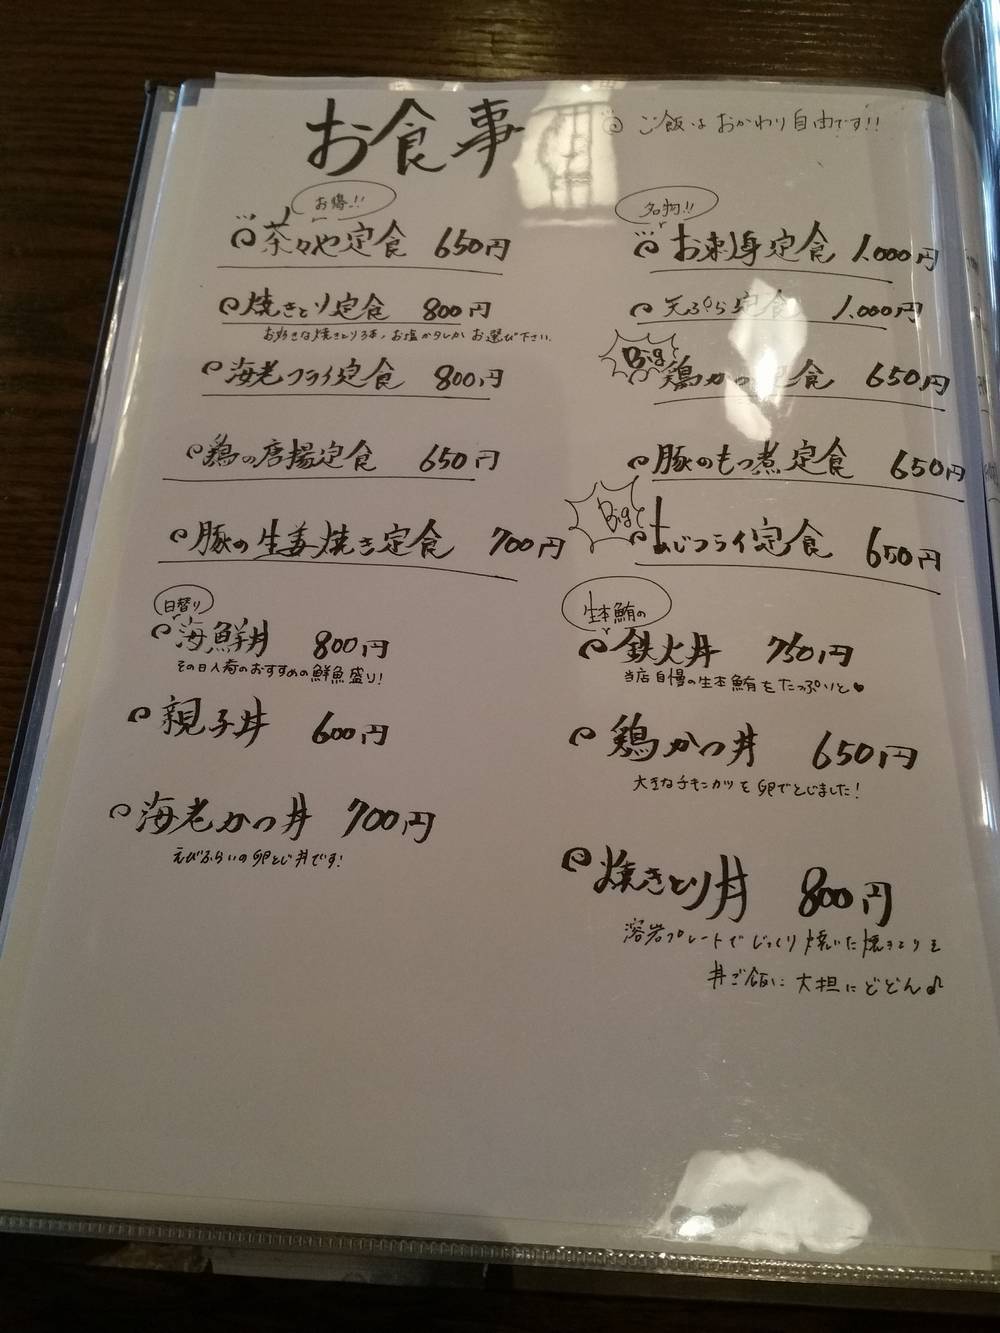 お食事
ご飯はおかわり自由です!!
お得!!
茶々や定食 650円
焼きとり定食 800円
お好きな焼きとり3本、お塩かタレかお選び下さい
海老フライ定食 800円
鶏の唐揚定食 650円
豚の生姜焼き定食 700円
日替り
海鮮丼 800円
その日入荷のおすすめの鮮魚盛り!
親子丼 600円
海老かつ丼 700円
えびふらいの卵とじ丼です!
名物!!
お刺身定食 1.000円
天ぷら定食 1.000円
Big
鶏かつ定食 650円
豚のもつ煮定食 650円
Big
あじフライ定食 650円
生本鮪の
鉄火丼 750円
当店自慢の生本鮪をたっぷりと♥
鶏かつ丼 650円
大きなチキンカツを卵でとじました!
焼きとり丼 800円
溶岩プレートでじっくり焼いた焼きとりを
丼ご飯に大担にどどん♪